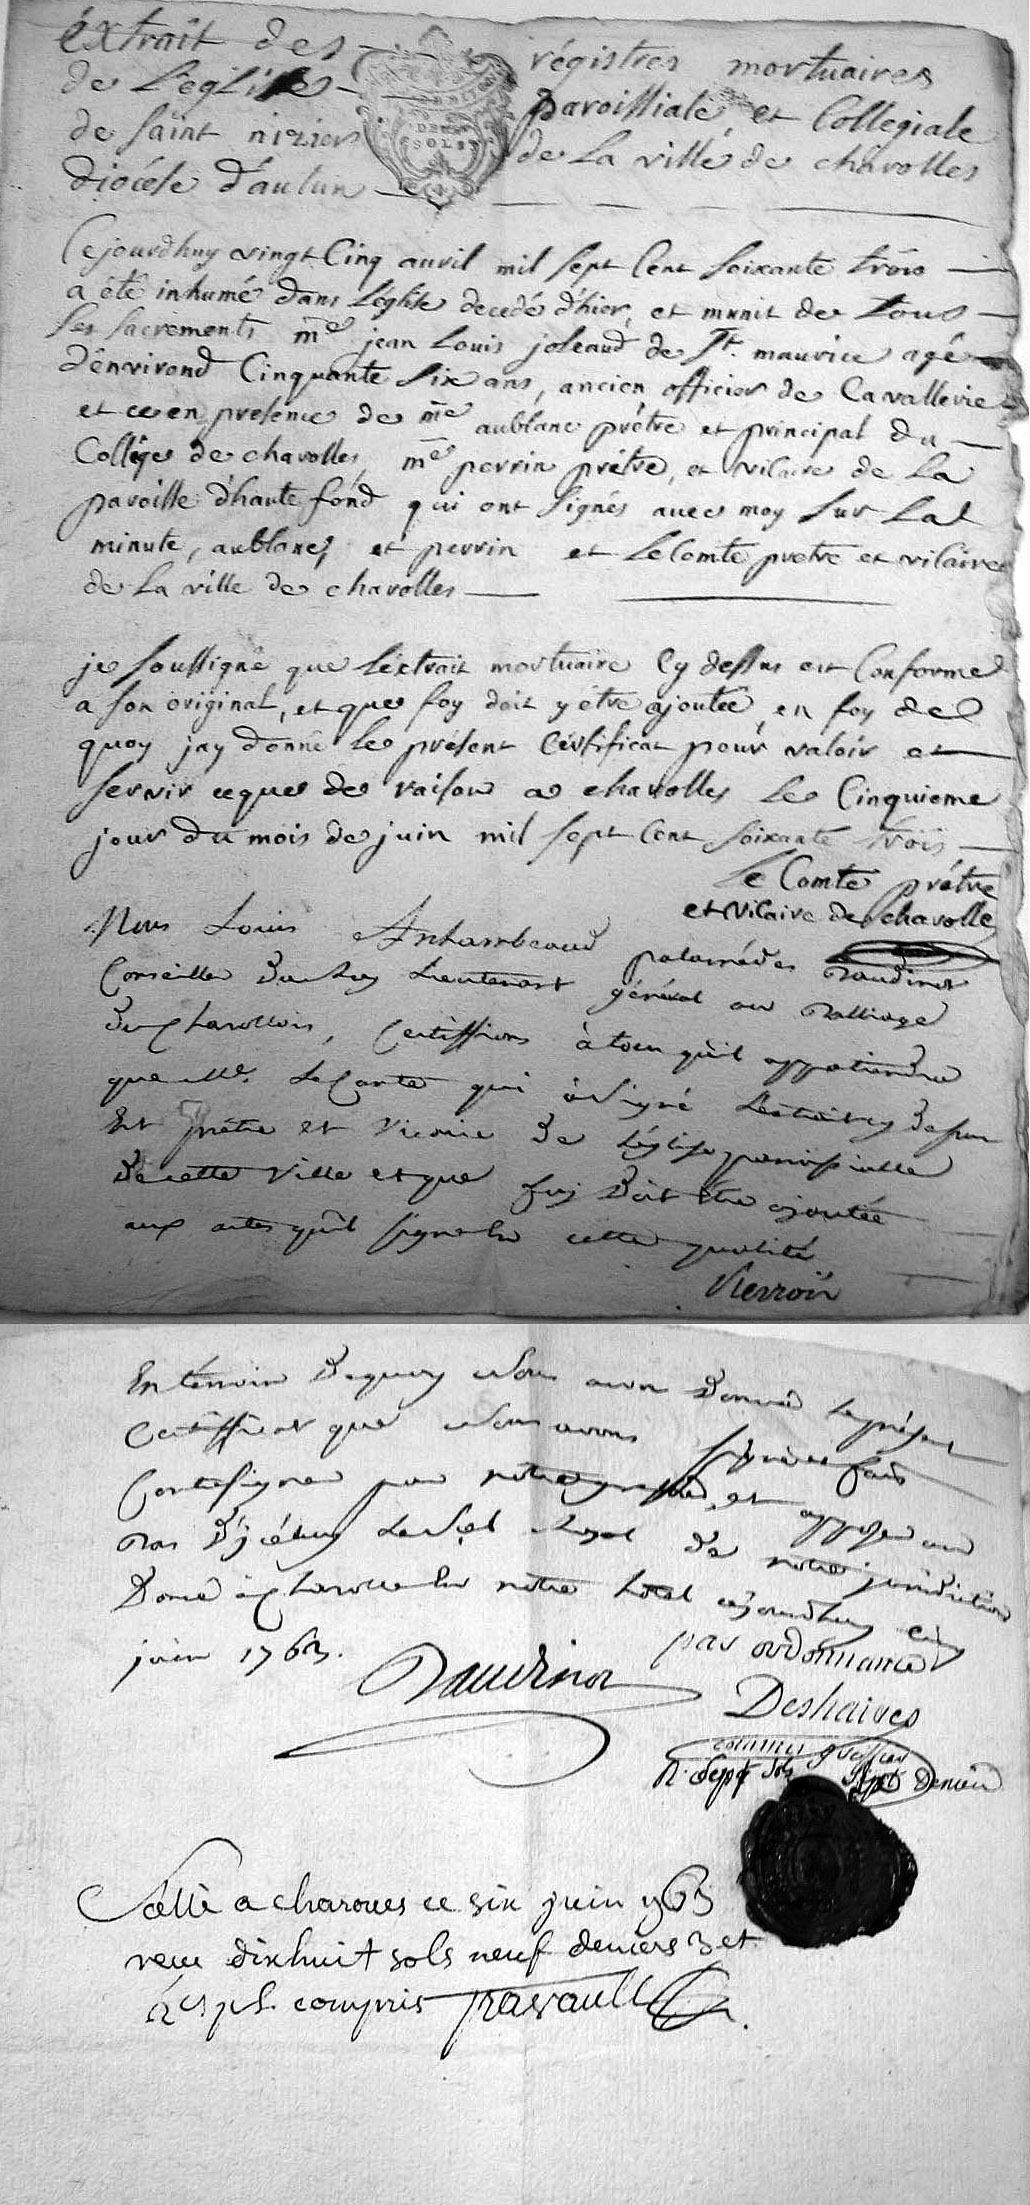 éxtrait des régistres mortuaires
de L'eglise paroissiale et Collegiale
de saint nizier de La ville de charolles
diocése d'autun
DEUX
SOLS
Cejourdhuy vingt Cinq avril mil sept Cent soixante trois
a été inhumé dans L'église decedé d'hier, et munit de tous
ses sacrements mre jean Louis joleaud de St. maurice agé
d'environd Cinquante six ans, ancien officier de Cavallerie
et ce en presence de mre aublanc prêtre et principal du
Collége de charolles, mre perrin prêtre, et vicaire de La
paroisse d'hautefond qui ont signés avec moy sur La
minute, aublanc, et perrin et LeComte pretre et vicaire
de La ville de charolles
je soussigné que L'extrait mortuaire Cy dessus est Conforme
a son original, et que foy doit y étre ajoutée, en foy de
quoy jay donné Le présent Certificat pour valoir et
servir ceque de raison a charolles Le Cinquieme
jour du mois de juin mil sept Cent soixante trois
Le Comte prétre
et vicaire de charolles
Nous Louis palamédes Raudinot
Conseiller du Roy Lieutenant général au Balliage
du Charollois, Certiffions à tous qu'il appartiendra
que Mre. LeComte qui à signé L'extrait cy dessus
Est prêtre et vicaire de L'église paroissialle
de cette ville et que foy doit être ajoutée
aux actes qu'il signe En cette qualité
En témoin dequoy Nous avons Donné Le présent
Certifficat que Nous avons signé et fait
Contresigner par notre greffier, et apposer au
Bas d'jcéluy Le scel Royal de notre juridiction
Donné à Charolles En notre hotel cejourdhuy cinq
juin 1763.
par ordonnance
Raudinot
Deshaires
commis greffier
R. sept sols sept Deniers
Scellé a charoles ce six juin 1763
reçu dixhuit sols neuf deniers 3 et
compris